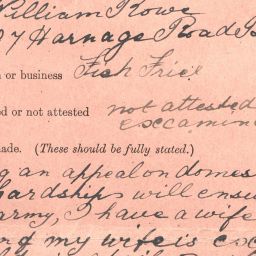 William Rowe
07 Harnage Road B
n or business Fish Frier
ed or not attested not attested
exccamin
nade. (These should be fully stated.)
g an appeal on domes
hardships will ensu
army, I have a wife
and my wife is exc